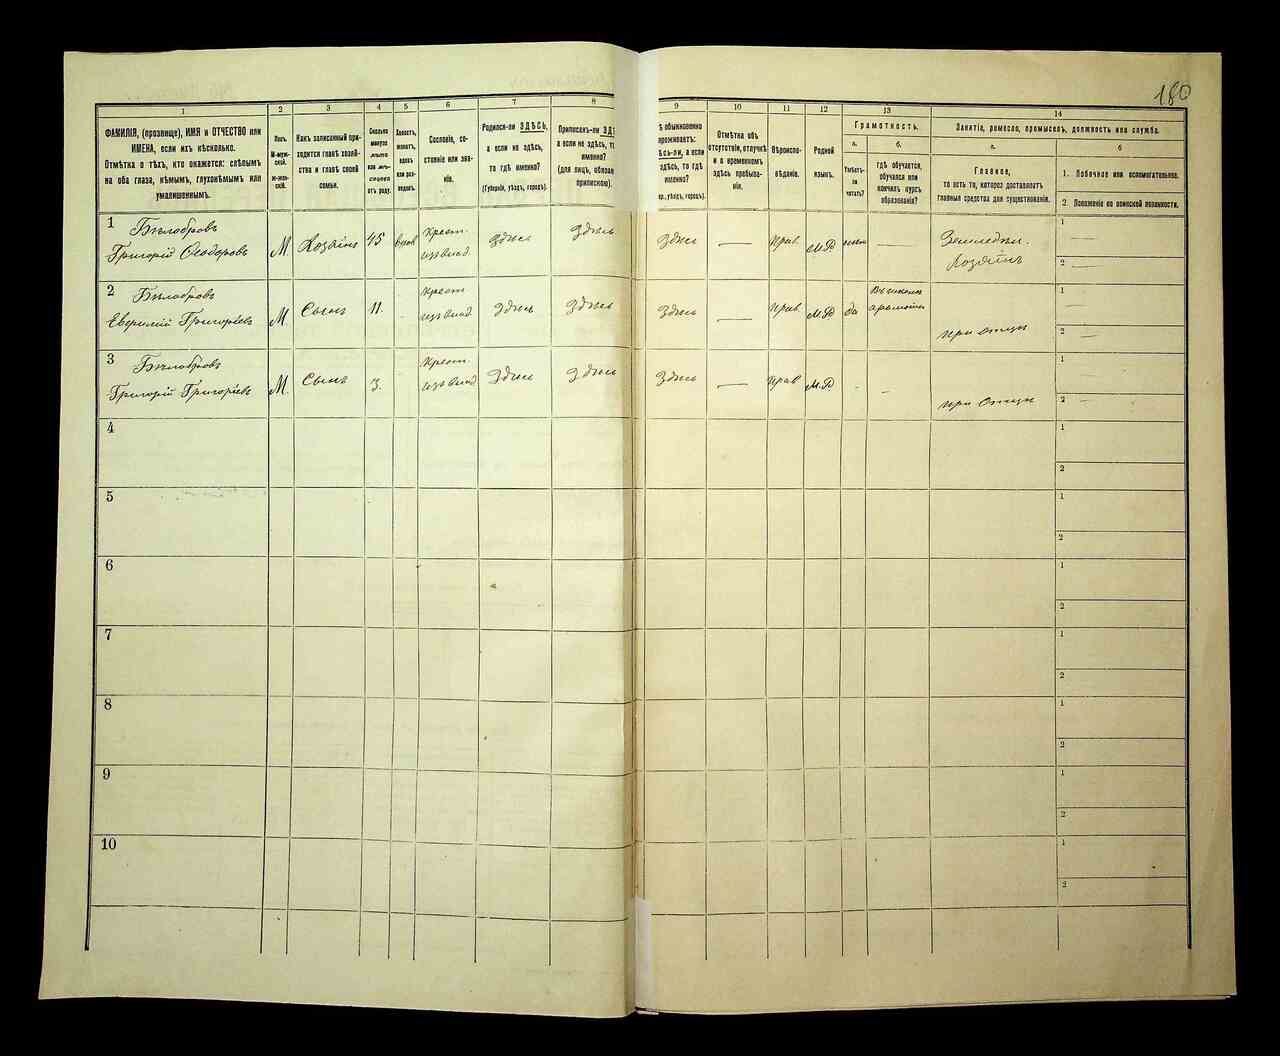 180
1
2
3
4
5
6
7
8
9
10
11
12
13
14
ФАМИЛІЯ, (прозвище), ИМЯ и ОТЧЕСТВО или
ИМЕНА, если ихъ нѣсколько.
Отмѣтка о тѣхъ, кто окажется: слѣпымъ
на оба глаза, нѣмымъ, глухонѣмымъ или
умалишеннымъ.
Полъ.
М-муж-
ской.
ж-жен-
скій.
Какъ записанный при-
ходится главѣ хозяй-
ства и главѣ своей
семьи.
Сколько
минуло
лѣтъ
или мѣ-
сяцевъ
отъ роду.
Холостъ,
женатъ,
вдовъ
или раз-
веденъ.
Сословіе, со-
стояніе или зва-
ніе.
Родился-ли ЗДѢСЬ,
а если не здѣсь,
то гдѣ именно?
(Губернія, уѣздъ, городъ).
Приписанъ-ли ЗД
а если не здѣсь, т
именно?
(для лицъ, обязан
припискою).
ѣ обыкновенно
проживаетъ:
ѣсь-ли, а если
здѣсь, то гдѣ
именно?
р., уѣздъ, городъ).
Отмѣтка объ
отсутствіи, отлучкѣ
и о временномъ
здѣсь пребыва-
ніи.
Вѣроиспо-
вѣданіе.
Родной
языкъ.
Грамотность.
а.
Умѣетъ-
ли
читать?
б.
гдѣ обучается,
обучался или
кончилъ курсъ
образованія?
Занятіе, ремесло, промыселъ, должность или служба.
а.
Главное,
то есть то, которое доставляетъ
главныя средства для существованія.
б
1. Побочное или вспомогательное.
2 Положеніе по воинской повинности.
1 Бѣлобровъ
Григорій Ѳеодоровъ
М.
Хозяинъ
45
вдов
Крест.
изъ влад.
здѣсь
здѣсь
здѣсь
—
Прав.
М.Р.
—
Земледѣл.
Хозяинъ
1 —
2 —
2 Бѣлобровъ
Григоріевъ
М.
Сынъ
11.
Крест
изъ влад.
здѣсь
здѣсь
здѣсь
—
Прав.
М.Р.
да
Въ школѣ
грамоты
при отцѣ
1 —
2 —
3 Бѣлобровъ
Григорій Григоріевъ
М.
Сынъ
3.
Крест.
изъ влад
здѣсь
здѣсь
здѣсь
—
Прав
М.Р.
-
при отцѣ
1 —
2 —
4
1
2
5
1
2
6
1
2
7
1
2
8
1
2
9
1
2
10
1
2